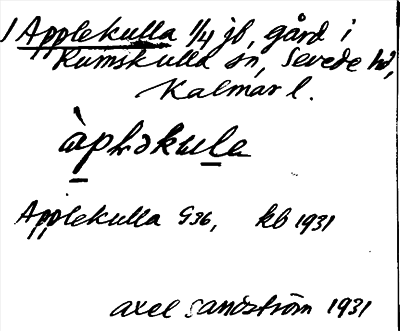 1 Applekulla 1/4 jb, gård i
Rumskulla sn, Sevede hd,
Kalmar l.
àpləkula
Applekulla G36, kb 1931
Axel Sandström 1931